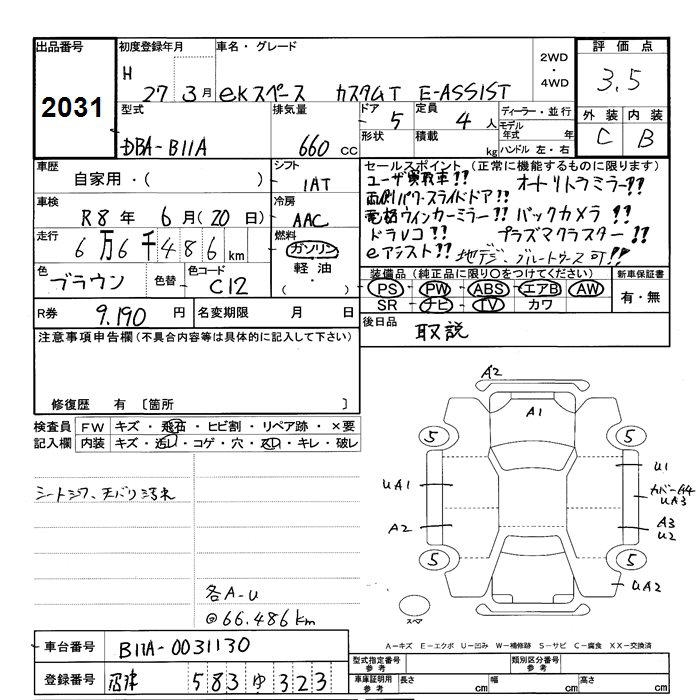 出品番号 初度登録年月 車名・グレード 2WD ・ 4WD 評価点
2031
H 27 3月 eKスペース カスタムT E-ASSIST 3.5
型式 排気量 ドア 5 定員 4人 ディーラー・並行 外装 内装
DBA-B11A 660 cc 形状 積載 kg モデル年式 年 C B
ハンドル 左・右
車歴 自家用・( ) シフト 1AT
車検 R8年 6月(20日) 冷房 AAC
走行 6万6千486km 燃料 ガソリン 軽油 ・ ( )
色 ブラウン 色替 色コード C12
R券 9,190円 名変期限 月 日
セールスポイント(正常に機能するものに限ります)
ユーザ買取車!! オートリトラミラー!!
両側パワースライドドア!!
電格ウインカーミラー!! バックカメラ!!
ドラレコ!! プラズマクラスター!!
eアシスト!! 地デジ、ブルートゥース可!!
装備品(純正品に限り○をつけてください) 新車保証書
PS・PW・ABS・エアB・AW 有・無
SR・ナビ・TV・カワ
後日品 取説
注意事項申告欄(不具合内容等は具体的に記入して下さい)
修復歴 有〔箇所 〕
検査員 FW キズ・飛石・ヒビ割・リペア跡・×要
記入欄 内装 キズ・汚レ・コゲ・穴・スレ・キレ・破レ
シートシワ、天バリ汚れ
各A-U
@66.486km
A2
A1
5 5
UA1 U1
カバー44
UA3
A2 A3
U2
5 5
UA2
スペア
A−キズ E−エクボ U−凹み W−補修跡 S−サビ C−腐食 XX−交換済
車台番号 B11A-0031130
登録番号 沼津 583 ゆ 323
型式指定番号 参考 類別区分番号 参考
車庫証明用 参考 長さ cm 幅 cm 高さ cm